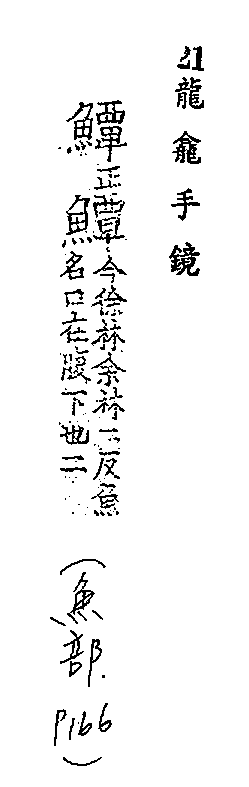 21龍龕手鏡
鱏正鱏今徐林余林二反魚
名口在腹下也二
(魚部. P166)